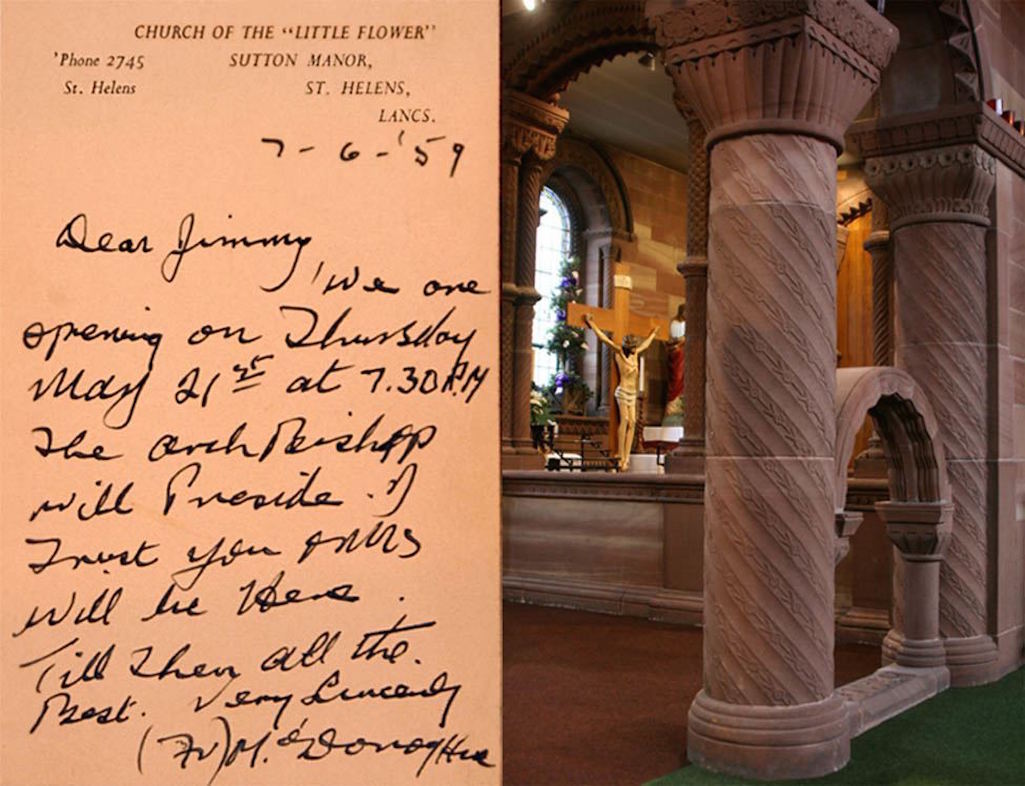 CHURCH OF THE "LITTLE FLOWER"
'Phone 2745 SUTTON MANOR,
St. Helens ST. HELENS,
LANCS.
7-6-'59
Dear Jimmy
We are
opening on Thursday
May 21st at 7.30 P.M
The Archbishop
will Preside. I
Trust you
Will be Here.
Till then all the.
Best. Very Sincerely
(Fr) M. McDonoghue